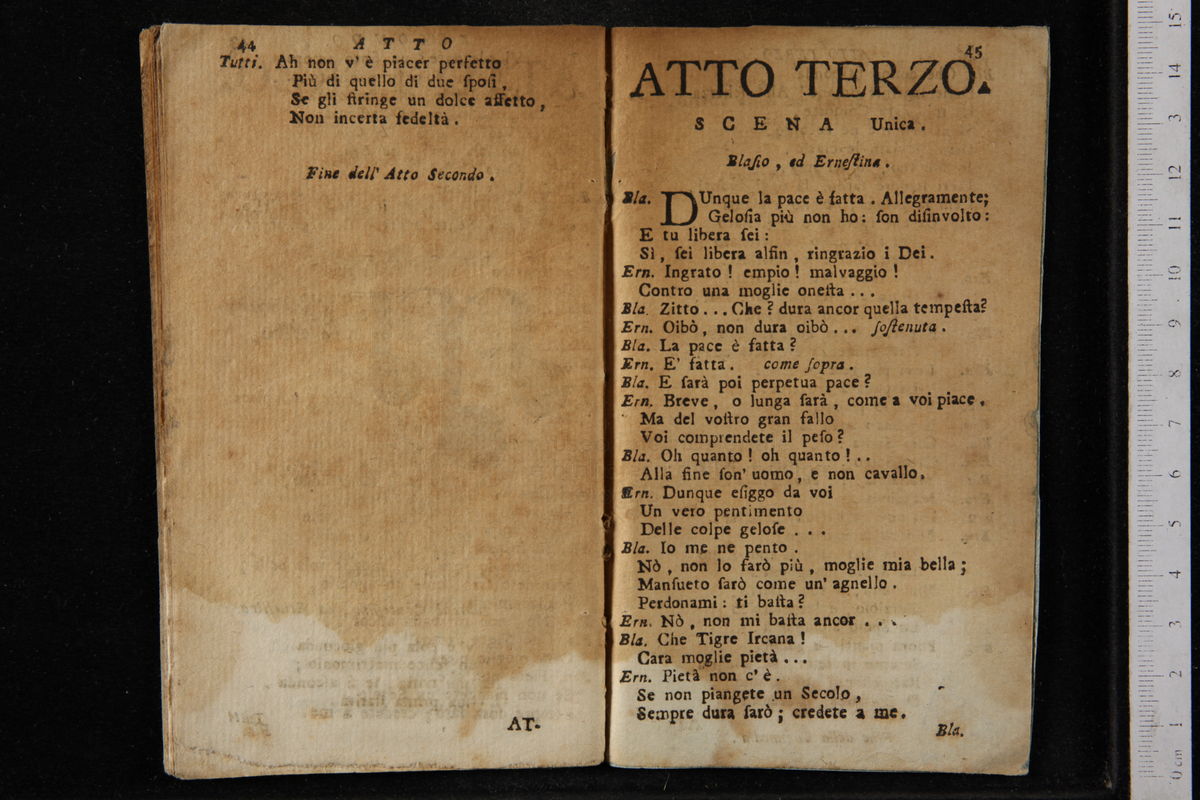 44 ATTO
Tutti. Ah non v' è piacer perfetto
Più di quello di due ſpoſi,
Se gli ſtringe un dolce affetto,
Non incerta fedeltà.
Fine dell' Atto Secondo.
AT-
45
ATTO TERZO.
SCENA Unica.
Blaſio, ed Erneſtina.
Bla. DUnque la pace è fatta. Allegramente;
Geloſia più non ho: ſon diſinvolto:
E tu libera ſei:
Sì, ſei libera alfin, ringrazio i Dei.
Ern. Ingrato! empio! malvaggio!
Contro una moglie oneſta...
Bla. Zitto... Che? dura ancor quella tempeſta?
Ern. Oibò, non dura oibò... ſoſtenuta.
Bla. La pace è fatta?
Ern. E' fatta. come ſopra.
Bla. E ſarà poi perpetua pace?
Ern. Breve, o lunga ſarà, come a voi piace.
Ma del voſtro gran fallo
Voi comprendete il peſo?
Bla. Oh quanto! oh quanto!..
Alla fine ſon' uomo, e non cavallo.
Ern. Dunque eſiggo da voi
Un vero pentimento
Delle colpe geloſe...
Bla. Io me ne pento.
Nò, non lo farò più, moglie mia bella;
Manſueto ſarò come un' agnello.
Perdonami: ti baſta?
Ern. Nò, non mi baſta ancor...
Bla. Che Tigre Ircana!
Cara moglie pietà...
Ern. Pietà non c' è.
Se non piangete un Secolo,
Sempre dura ſarò; credete a me.
Bla.